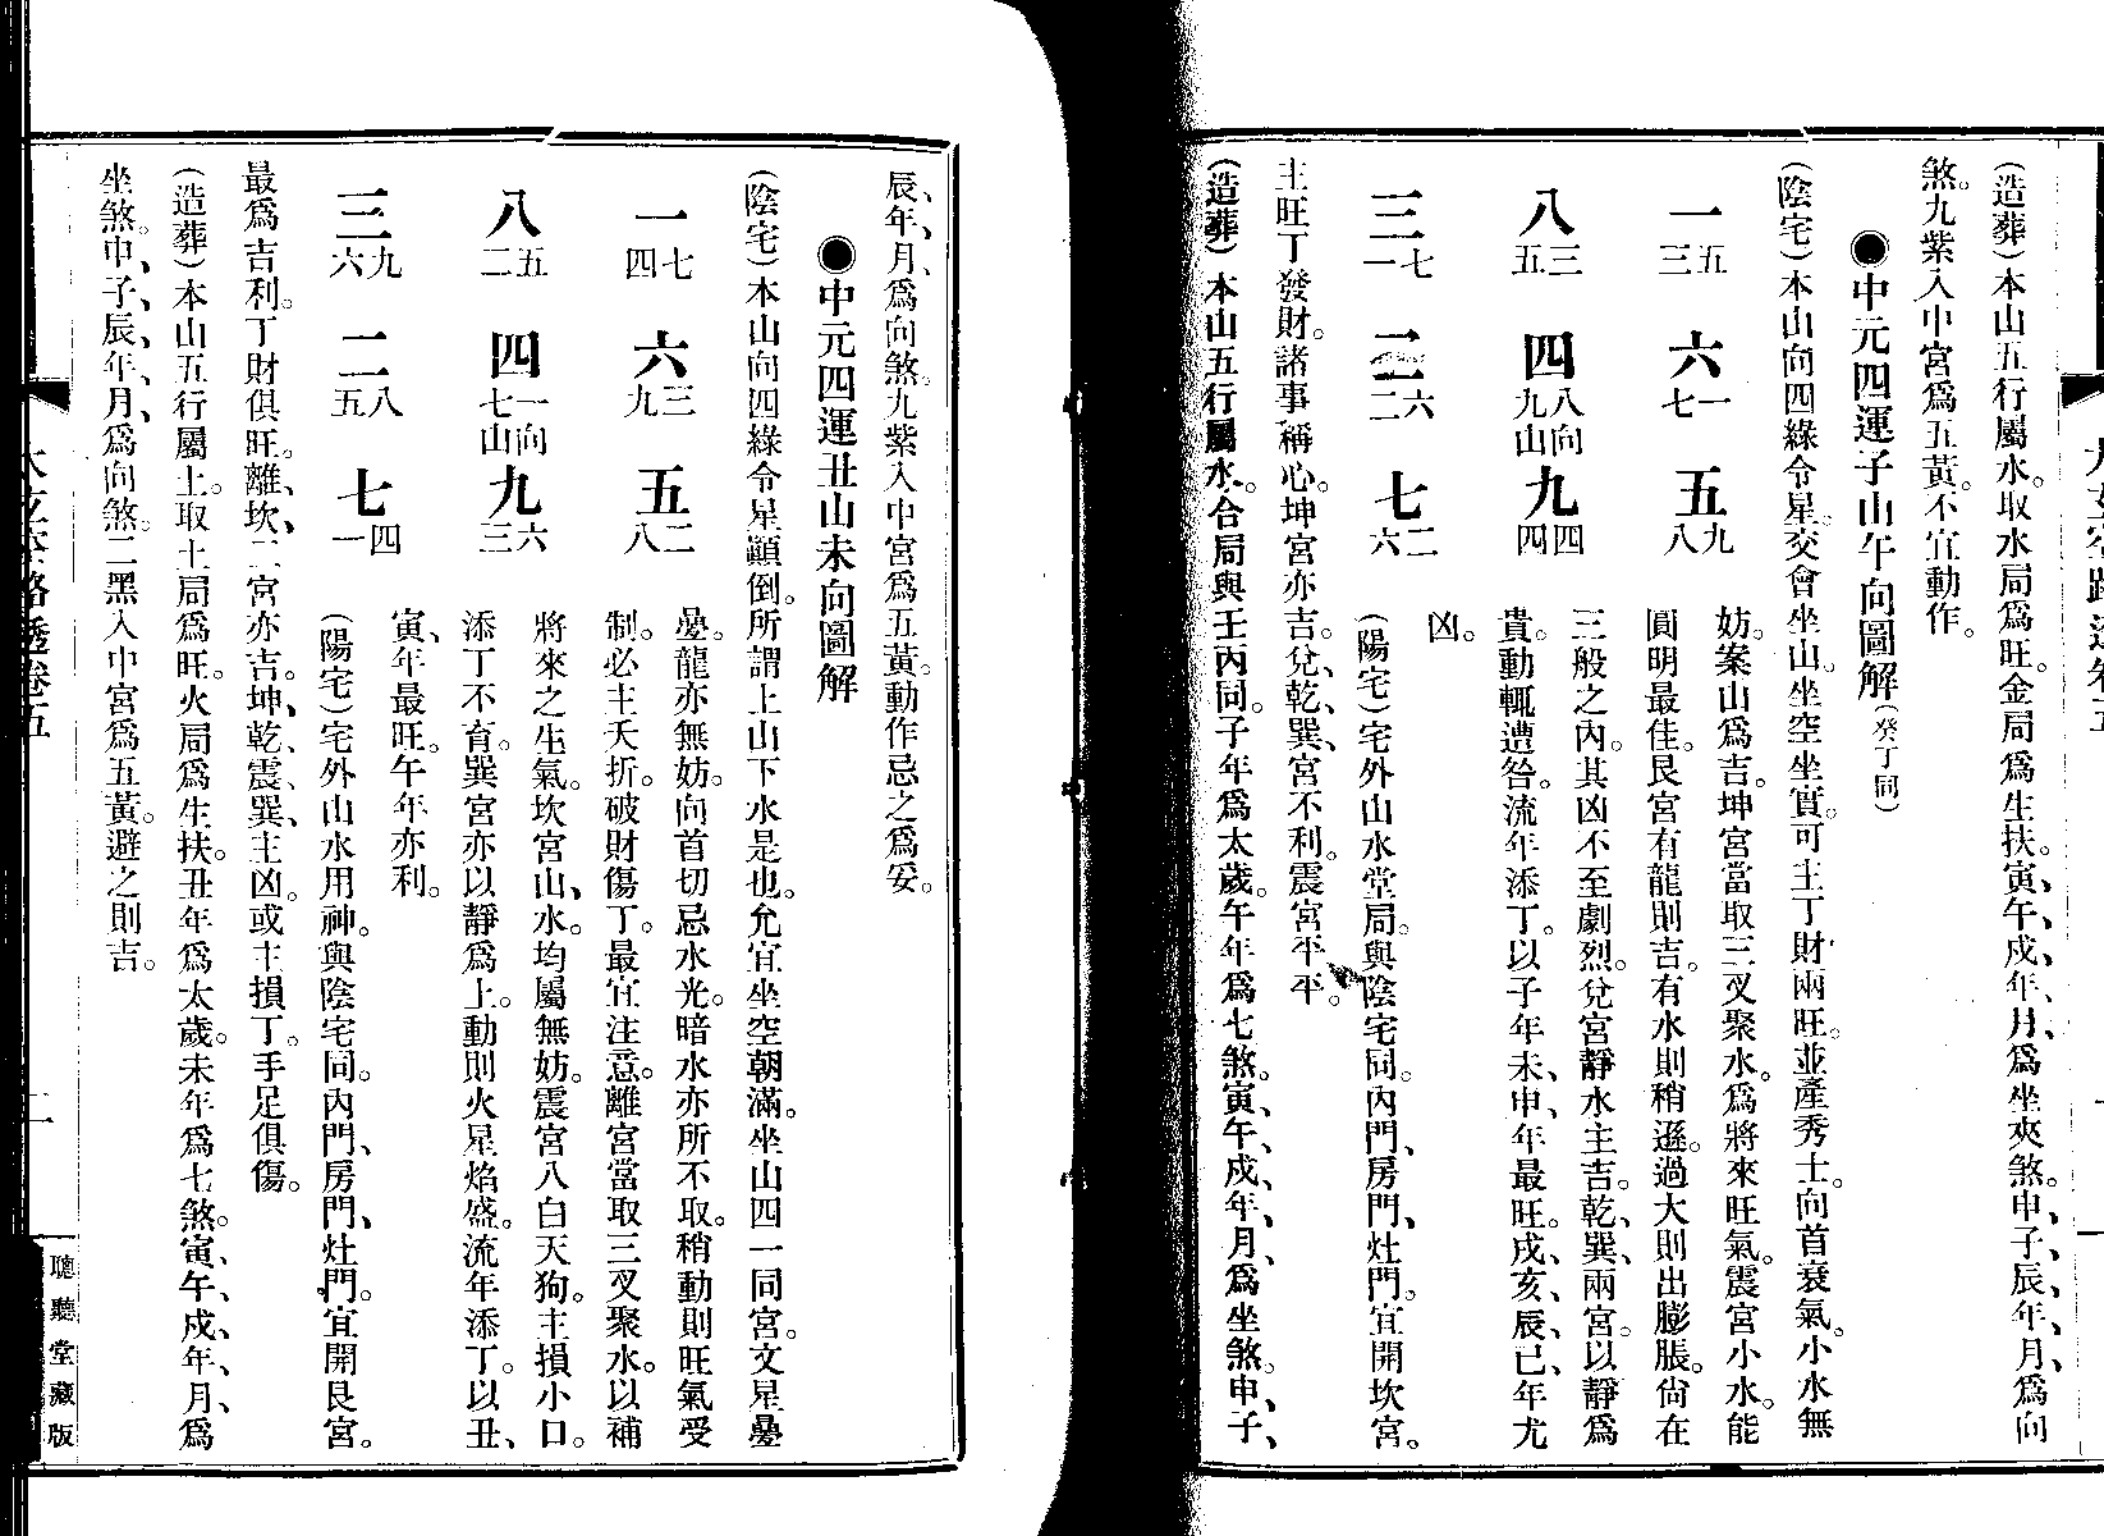 (造葬)本山五行屬水。取水局爲旺。金局爲生扶。寅、午、戌、年、月、爲坐夾煞。申、子、辰、年、月、爲向
煞。九紫入中宮爲五黃。不宜動作。
●中元四運子山午向圖解(癸丁同)
(陰宅)本山向四綠令星。交會坐山。坐空坐實。可主丁財兩旺。並產秀士。向首衰氣。小水無
妨。案山爲吉。坤宮當取三叉聚水。爲將來旺氣。震宮小水。能
圓明最佳。艮宮有龍則吉。有水則稍遜。過大則出膨脹。尙在
三般之內。其凶不至劇烈。兌宮靜水主吉。乾、巽、兩宮。以靜爲
貴。動輒遭咎。流年添丁。以子年未、申、年最旺。戌、亥、辰、巳、年尤
凶。
一 三五 六 七一 五 八九
八 五三 四 九八 山向 九 四四
三 一七 二 二六 七 六二
(陽宅)宅外山水堂局。與陰宅同。內門、房門、灶門。宜開坎宮。
主旺丁發財。諸事稱心。坤宮亦吉。兌、乾、巽、宮不利。震宮平平。
(造葬)本山五行屬水。合局與壬丙同。子年爲太歲。午年爲七煞。寅、午、戌、年、月、爲坐煞。申、子、
辰、年、月、爲向煞。九紫入中宮爲五黃。動作忌之爲妥。
●中元四運丑山未向圖解
(陰宅)本山向四綠令星顚倒。所謂上山下水是也。允宜坐空朝滿。坐山四一同宮。文星疊
疊。龍亦無妨。向首切忌水光。暗水亦所不取。稍動則旺氣受
制。必主夭折。破財傷丁。最宜注意。離宮當取三叉聚水。以補
將來之生氣。坎宮山、水。均屬無妨。震宮八白天狗。主損小口。
添丁不育。巽宮亦以靜爲上。動則火星焰盛。流年添丁。以丑、
寅、年最旺。午年亦利。
一 四七 六 九三 五 八二
八 二五 四 七一 山向 九 三六
三 六九 二 五八 七 一四
(陽宅)宅外山水用神。與陰宅同。內門、房門、灶門。宜開艮宮。
最爲吉利。丁財俱旺。離、坎、二宮亦吉。坤、乾、震、巽、主凶。或主損丁。手足俱傷。
(造葬)本山五行屬土。取土局爲旺。火局爲生扶。丑年爲太歲。未年爲七煞。寅、午、戌、年、月、爲
坐煞。申、子、辰、年、月、爲向煞。二黑入中宮爲五黃。避之則吉。
卷五
二
聽聽堂藏版